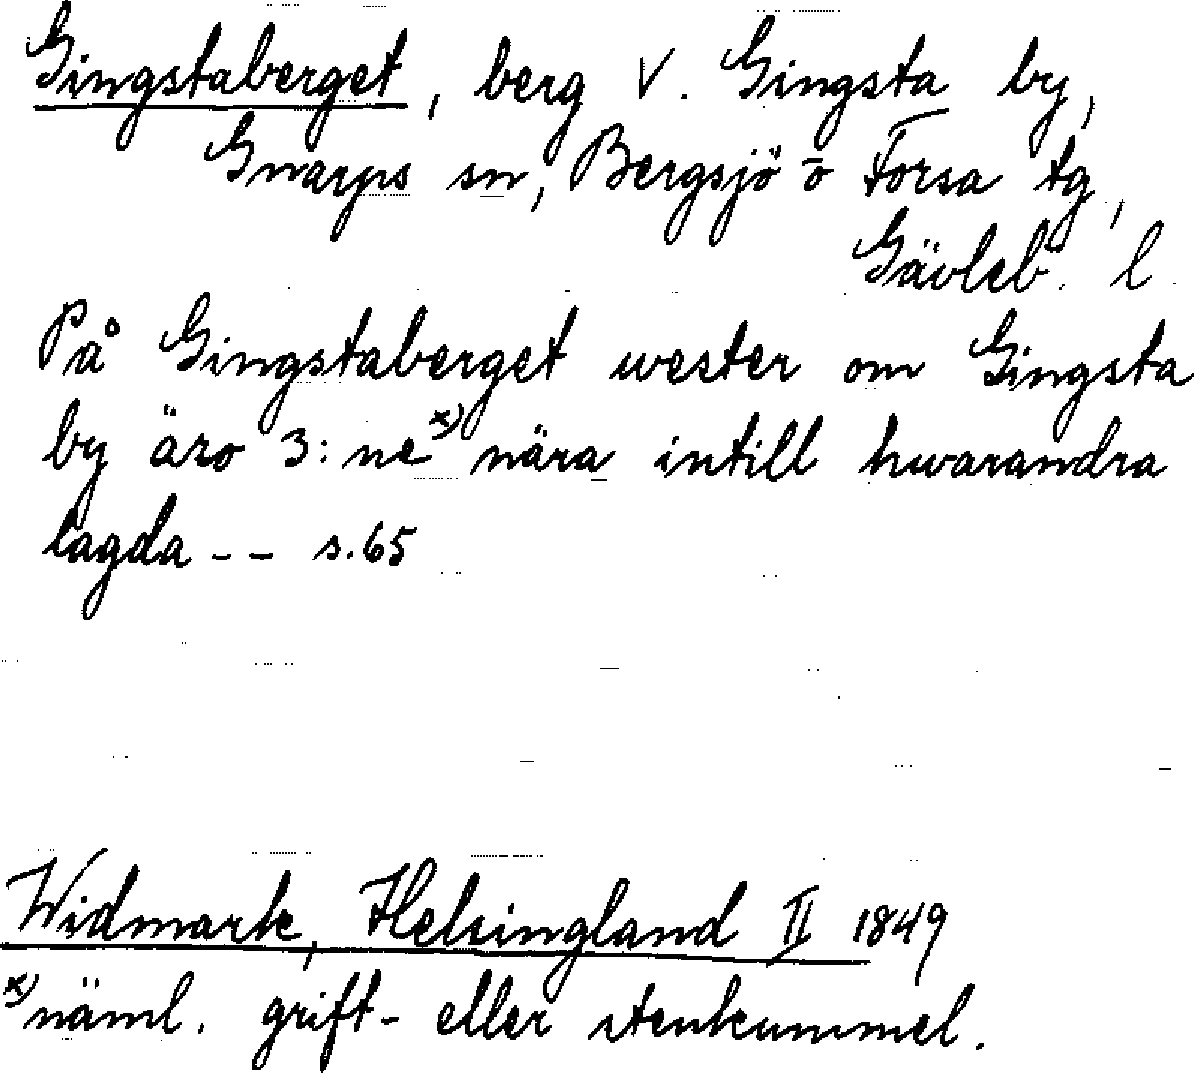 Gingstaberget, berg V. Gingsta by,
Gnarps sn, Bergsjö o Forsa tg,
Gävleb. l
På Gingstaberget wester om Gingsta
by äro 3:ne x) nära intill hwarandra
lagda -- s.65
Widmark, Helsingland II 1849
x) näml. grift- eller stenkummel.